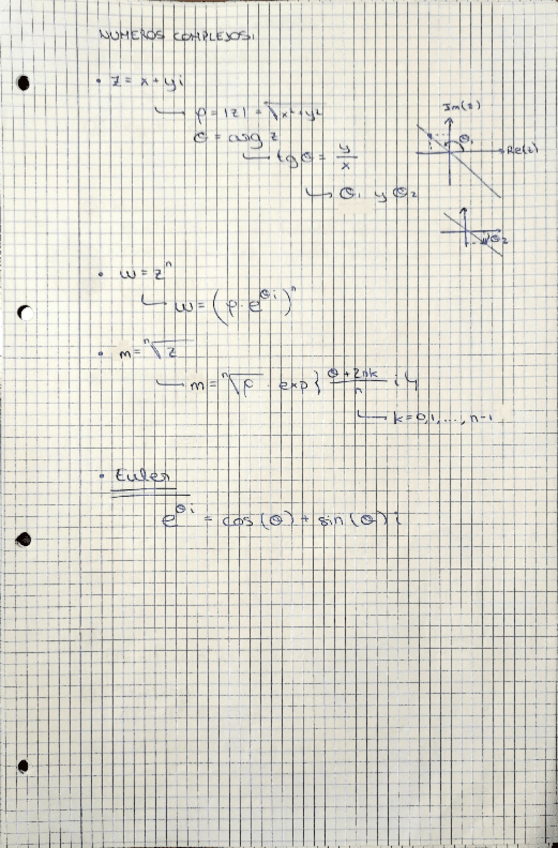 NUMEROS COMPLEJOS:
• z = x + yi
ρ = |z| = √x²+y²
θ = arg z
tg θ = y/x
θ₁ y θ₂
Im(z)
θ₁
Re(z)
θ₂
• w = zⁿ
w = (ρ · e^θi)ⁿ
• m = ⁿ√z
m = ⁿ√ρ · exp{ θ + 2πk / n i }
k = 0, 1, ..., n-1
• Euler
e^θi = cos(θ) + sin(θ) i